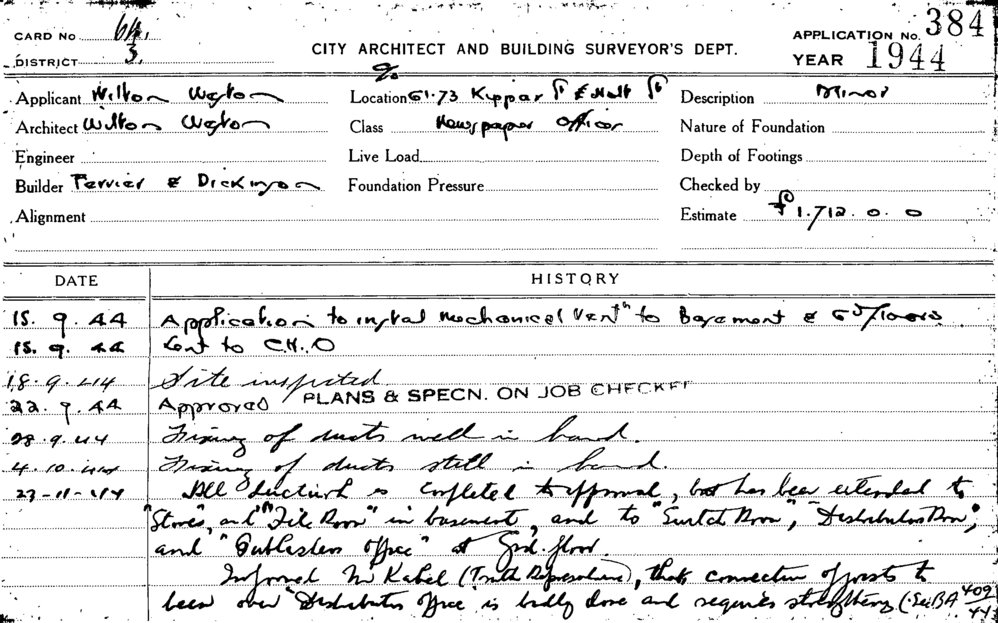 CARD No 64.
DISTRICT 3.
CITY ARCHITECT AND BUILDING SURVEYOR'S DEPT.
APPLICATION No. 384
YEAR 1944
Applicant Wilton Location 61.73 Kippax St & Holt St Description Minor
Architect Wilton Class Newspaper Offices Nature of Foundation
Engineer Live Load Depth of Footings
Builder Ferrier & Dickinson Foundation Pressure Checked by
Alignment Estimate £1.712.0.0
DATE HISTORY
15.9.44 Application to instal Mechanical Ventn to Basement & Floors
15.9.44 Sent to C.H.O
18.9.44 Site inspected
PLANS & SPECN. ON JOB CHECKED
22.9.44 Approved
28.9.44 Fixing of ducts well in hand.
4.10.44 Fixing of ducts still in hand.
23-11-44 All Ductwork is completed to approval, but has been extended to
"Stores", and "File Room" in basement, and to "Switch Room", "Distribution Room",
and "Publishers Office" at Grd. floor.
Informed Mr Kabel (Truth Representative), that connection of joists to
beam over "Distribution Office" is badly done and requires strengthening (See BA 409/44)